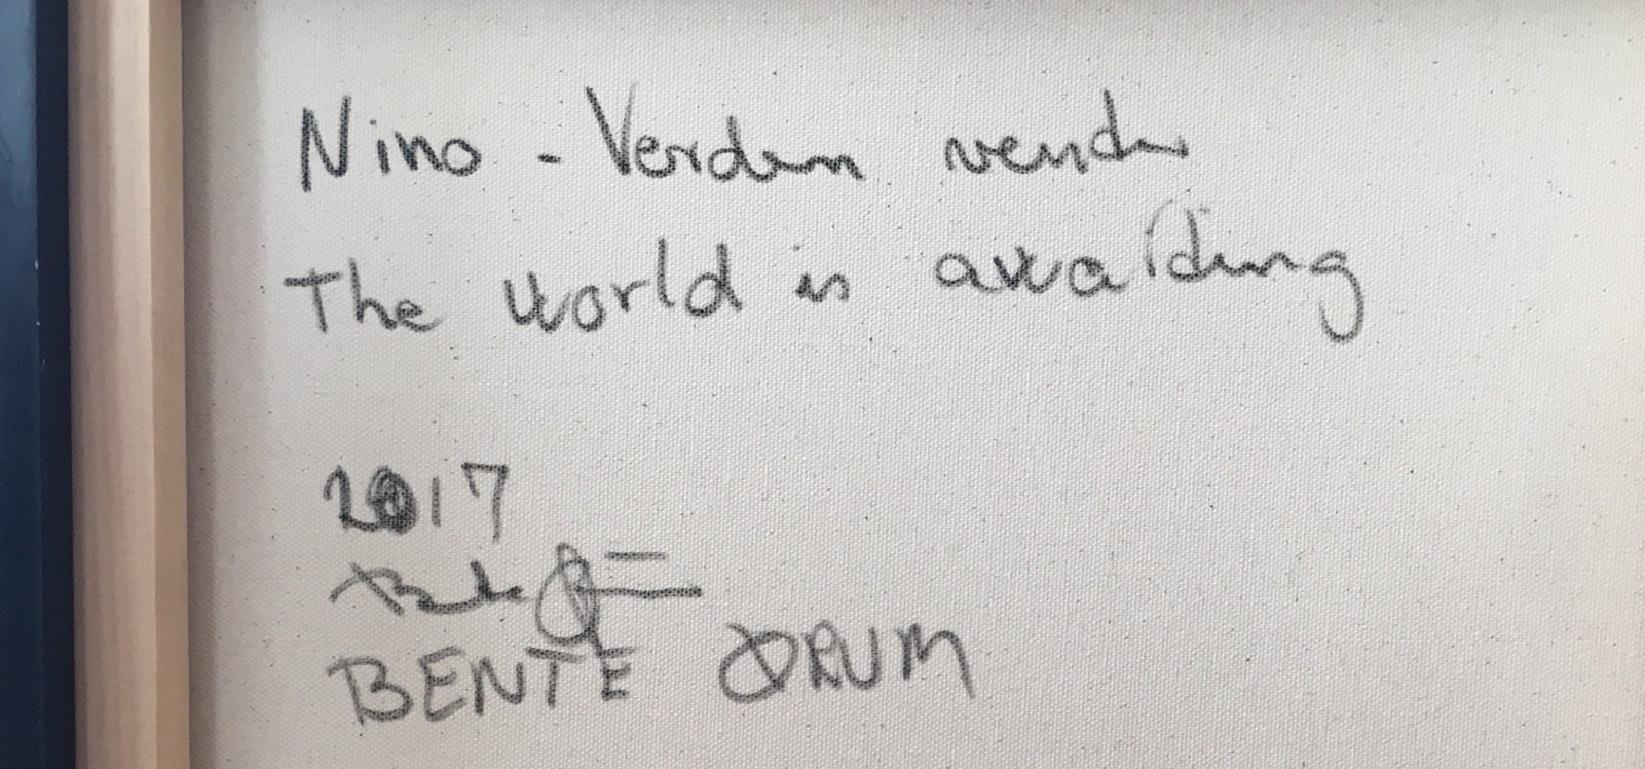 Nino - Verden venter
The world is awaiding
2017
BENTE ØRUM